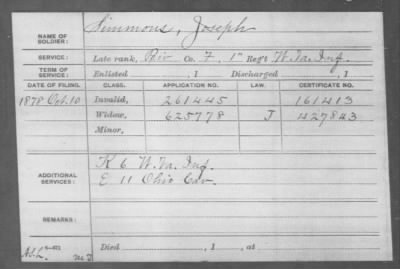 Simmons, Joseph
NAME OF SOLDIER:
SERVICE: Late rank, Priv Co. F, 1" Reg't W. Va. Inf.
TERM OF SERVICE: Enlisted , 1 Discharged , 1
DATE OF FILING. CLASS. APPLICATION NO. LAW. CERTIFICATE NO.
1878 Oct. 10 Invalid, 261445 161413
Widow, 625778 J 427843
Minor,
K 6 W. Va. Inf.
ADDITIONAL SERVICES: E 11 Ohio Cav.
REMARKS:
Died , 1 , at